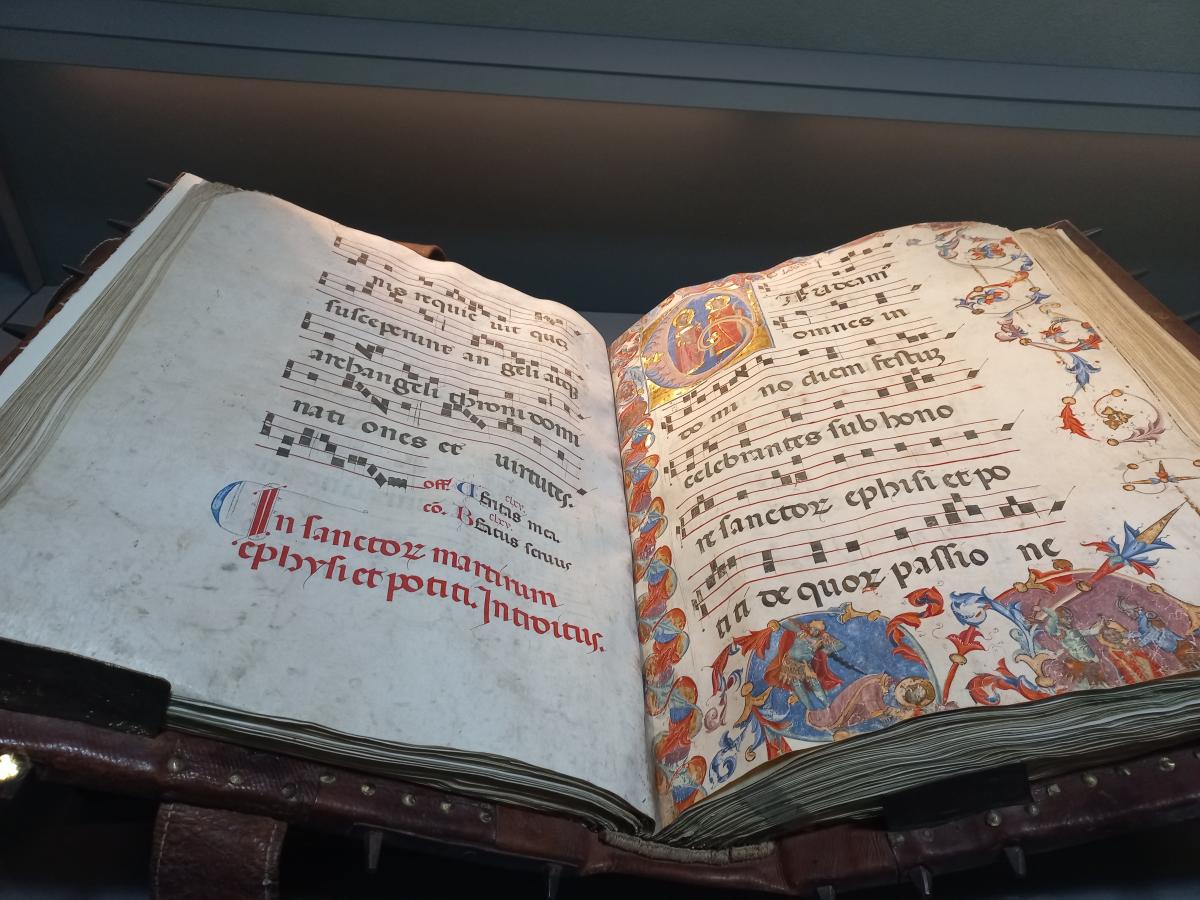 nis requie uit quo
susceperunt an geli atqz
archangeli throni domi
nati ones et uirtutes.
off. clxv. Ueritas mea.
cō. clxv. Beatus seruus
In sanctoꝝ martirum
ephysi et potiti. Introitus.
audeam
omnes in
do mi no diem festuz
celebrantes sub hono
re sanctoꝝ ephisi et po
ti ti de quoꝝ passio ne